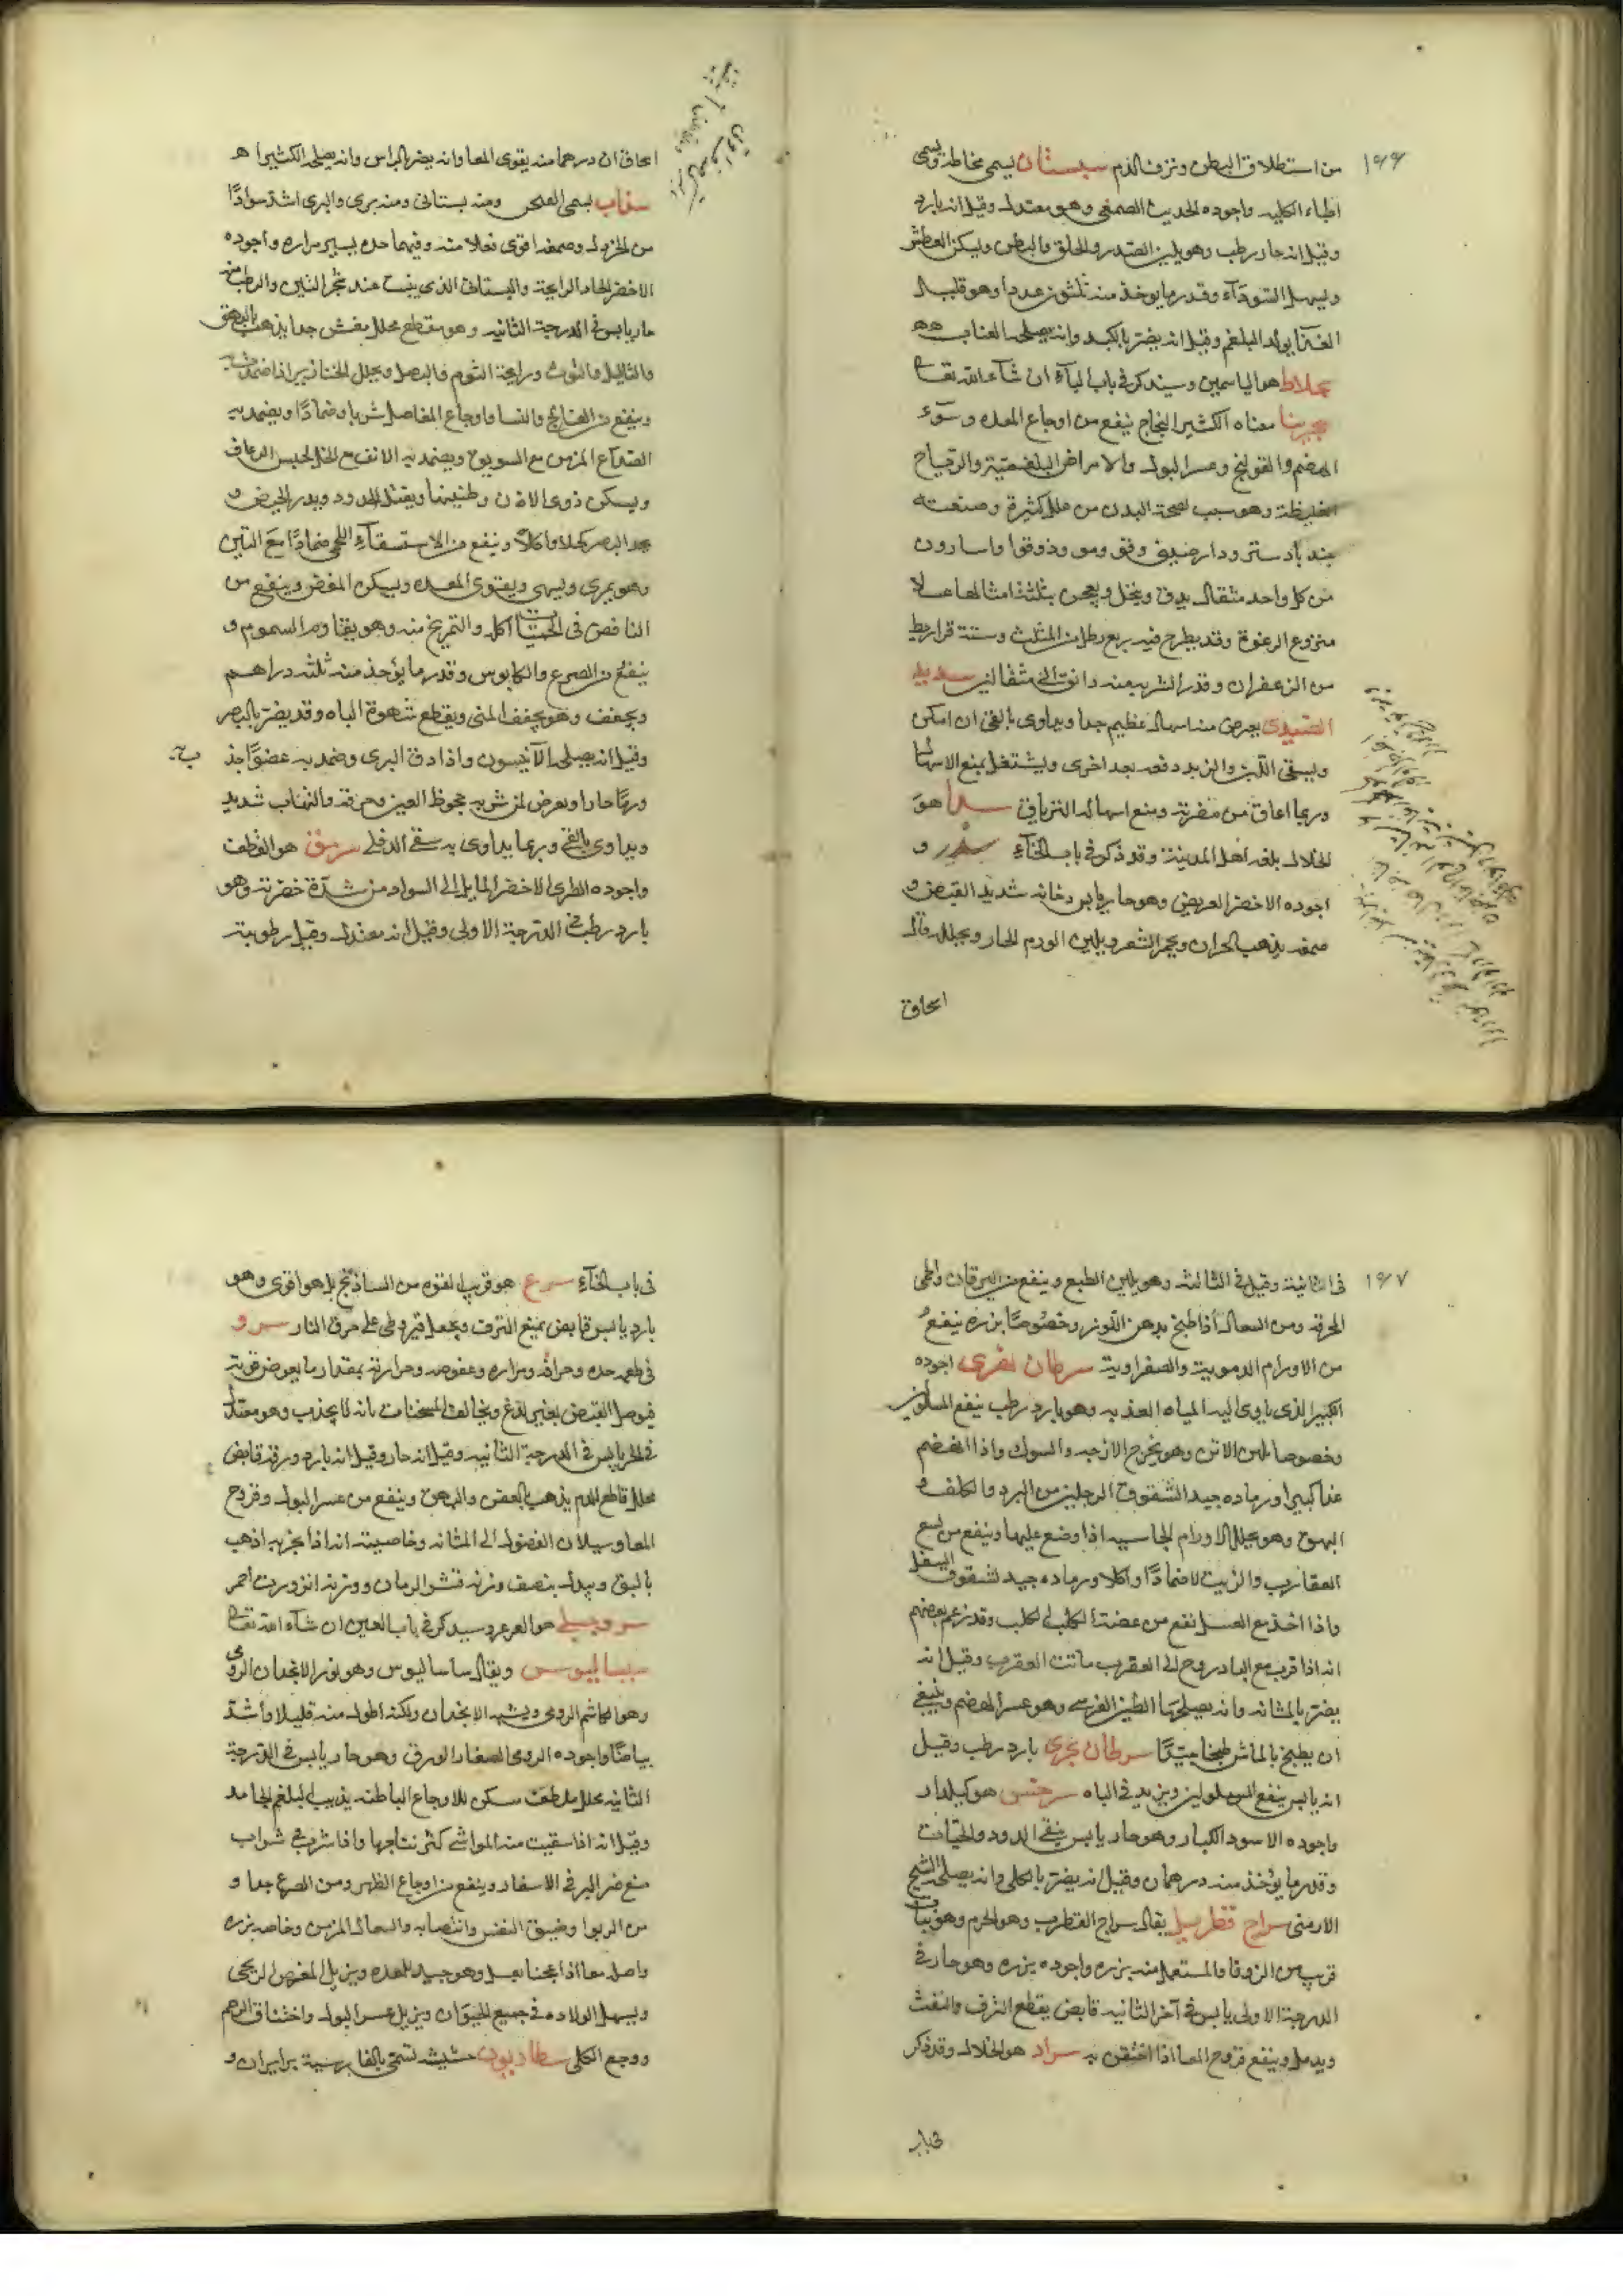 ١٩٩
من استطلاق البطن ونزف الدم سبستان يسمى مخاطة ويسمى
اطباء الكلبه واجوده الحديث الصمغى وهو معتدل وقيل انه بارد
وقيل انه حار رطب وهو يلين الصدر والحلق والبطن ويسكن العطش
ويسهل السوداء وقدر ما يوخذ منه ثلثون عددا وهو قليل
الغذا يولد البلغم وقيل انه يضر بالكبد وانه يصلحه العناب
سجلاط هو الياسمين وسيذكر فى باب الياء ان شاء الله تعالى
سجرينا معناه الكثير النجاح ينفع من اوجاع المعده وسوء
الهضم والقولنج وعسر البول والامراض البلغميه والرياح
الغليظة وهو سبب لصحة البدن من علل كثيرة وصنعته
جندبادستر ودارصينى وفو ومو ودوقوا واسارون
من كل واحد مثقال يدق وينخل ويعجن بثلثة امثالها عسلا
منزوع الرغوة وقد يطرح فيه ربع رطل من المثلث وستة قراريط
من الزعفران وقدر الشربه منه دانق الى مثقالين سديد
الصيدى يعرض منه اسهال عظيم جدا ويداوى بالقئ ان امكن
ويسقى اللبن والزبد دفعه بعد اخرى ويشتغل بمنع الاسهال
وربما اعاق من مضرته ومنع اسهاله الترياق سدا هو
الخلال بلغه اهل المدينة وقد ذكر فى باب الخاء سدر و
اجوده الاخضر العريض وهو حار يابس دخانه شديد القبض و
صمغه يذهب الحزاز ويحمر الشعر ويلين الورم الحار ويحلله قال
اسحاق
اسحاق ان درهما منه يقوى المعا وانه يضر بالراس وانه يصلحه الكثيرا
سذاب يسمى الفيجن ومنه بستانى ومنه برى والبرى اشد سوادا
من الخزمل وصمغه اقوى فعلا منه وفيهما حده يسير مراره واجوده
الاخضر الحاد الرائحة والبستانى الذى ينبت عند شجر التين والرطب منه
حار يابس فى الدرجة الثانيه وهو مقطع محلل مفش جدا يذهب بالبهق
والثاليل والتوث ورائحة الثوم والبصل ويحلل الخنازير اذا ضمد به
وينفع من الفالج والنسا واوجاع المفاصل شربا وضمادا ويضمد به
الصداع المزمن مع السويق ويضمد به الانف مع الخل لحبس الرعاف
ويسكن دوى الاذن وطنينها ويقتل الدود ويدر الحيض و
يحد البصر كحلا واكلا وينفع من الاستسقاء اللحمى ضمادا مع التين
وهو يمرى ويشهى ويقوى المعده ويسكن المغص وينفع من
النافض فى الحميات اكله والتمريخ منه وهو يقاوم السموم و
ينفع من الصرع والكابوس وقدر ما يؤخذ منه ثلثه دراهم
ويجفف وهو يجفف المنى ويقطع شهوة الباه وقد يضر بالبصر
وقيل انه يصلحه الانيسون واذا دق البرى وضمد به عضوا جذب
ورما حارا ويعرض لمن شربه جحوظ العين وحرقة والتهاب شديد
ويداوى بالقئ وربما يداوى به سقى الدفلى سرمق هو القطف
واجوده الطرى الاخضر المايل الى السواد من شدة خضرته وهو
بارد رطب فى الدرجة الاولى وقيل انه معتدل وقيل رطوبته
١٩٧
فى الثانية وقيل فى الثالثه وهو يلين الطبع وينفع من اليرقان والحمى
الحرقه ومن السعال اذا طبخ بدهن اللوز وخصوصا بزره ينفع
من الاورام الدمويه والصفراوية سرطان نهرى اجوده
الكبير الذى ياوى اليه المياه العذبه وهو بارد رطب ينفع المسلولين
وخصوصا بلبن الاتن وهو يخرج الازجه والسوك واذا انهضم
غذا كبيرا ورماده جيد لشقوق الرجلين من البرد والكلف و
البهق وهو يحلل الاورام الجاسيه اذا وضع عليها وينفع من لسع
العقارب والزيت لاضمادا واكلا ورماده جيد لشقوق السفل
واذا اخذ مع العسل نفع من عضة الكلب الكلب وقد زعم بعضهم
انه اذا قرب مع البادروج الى العقرب ماتت العقرب وقيل انه
يضر بالمثانه وانه يصلحها الطين القبرسى وهو عسر الهضم وينبغى
ان يطبخ بالماش طبخا جيدا سرطان بحرى بارد رطب وقيل
انه يابس ينفع المسلولين ويزيد فى الباه سرخس هو كيلدار
واجوده الاسود الكبار وهو حار يابس ينقى الدود والحيات
وقدر ما يؤخذ منه درهمان وقيل انه يضر بالكلى وانه يصلحه الشيح
الارمنى سراج قطربل يقال سراج القطرب وهو الخرم وهو نبات
قريب من الزوفا والمستعمل منه بزره واجوده بزره وهو حار فى
الدرجة الاولى يابس فى آخر الثانيه قابض يقطع النزف والنفث
ويدمل وينفع قروح المعا اذا احتقن به سراد هو الخلال وقد ذكر
فى باب
فى باب الخاء سرع هو قريب القوه من الساذنج بل هو اقوى وهو
بارد يابس قابض يمنع النزف ويجعل قيروطى على حرق النار سرو
فى طعمه حده وحرافه ومراره وعفوصه وحرارته بمقدار ما يغوص قوته
فيوصل القبض بغير لذع ويخالف المسخنات بانه لا يجذب وهو معتدل
فى الحر يابس فى الدرجة الثانيه وقيل انه حار وقيل انه بارد ورقه قابض
محلل قاطع للدم يذهب بالعفن والبهق وينفع من عسر البول وقروح
المعا وسيلان الفضول الى المثانه وخاصيته انه اذا بخر به اذهب
بالبق وبدله بنصف وزنه قشر الرمان ووزنه انزروت احمر
سروجبلى هو العرعر وسيذكر فى باب العين ان شاء الله تعالى
سيساليوس ويقال ساساليوس وهو بزر الانجدان الرومى
وهو الكاشم الرومى ويشبه الانجدان ولكنه اطول منه قليلا واشد
بياضا واجوده الرومى الصغار الورق وهو حار يابس فى الدرجة
الثانيه محلل ملطف مسكن للاوجاع الباطنه يذيب البلغم الجامد
وقيل انه اذا سقيت منه المواشى كثر نتاجها واذا شرب فى شراب
منع ضر البرد فى الاسفار وينفع من اوجاع الظهر ومن الصرع جدا و
من الربوا وضيق النفس وانتصابه والسعال المزمن وخاصه بزره
واصله معا اذا عجنا بعسل وهو جيد للمعده ويزيل المغص الريحى
ويسهل الولاده فى جميع الحيوان ويزيل عسر البول واختناق الرحم
ووجع الكلى سطاديون حشيشه تسمى بالفارسية برايران و